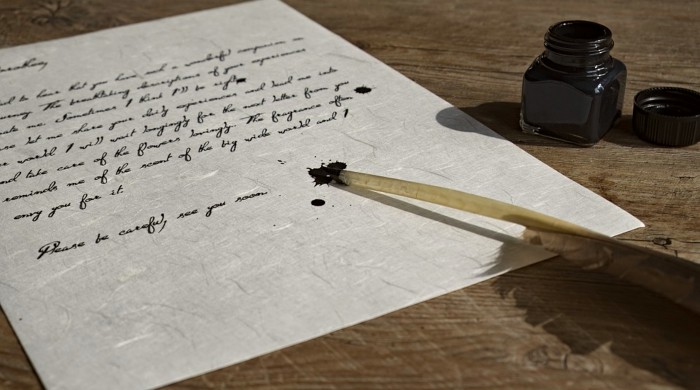 to hear that you have met a wonderful companion
The breathtaking descriptions of your experiences
me. Sometimes I think I'll to right
let me share your daily experiences and lead me into
world. I will wait longingly for the next letter from you
and take care of the flowers lovingly. The fragrance often
reminds me of the scent of the big wide world and I
envy you for it.
Please be careful, see you soon